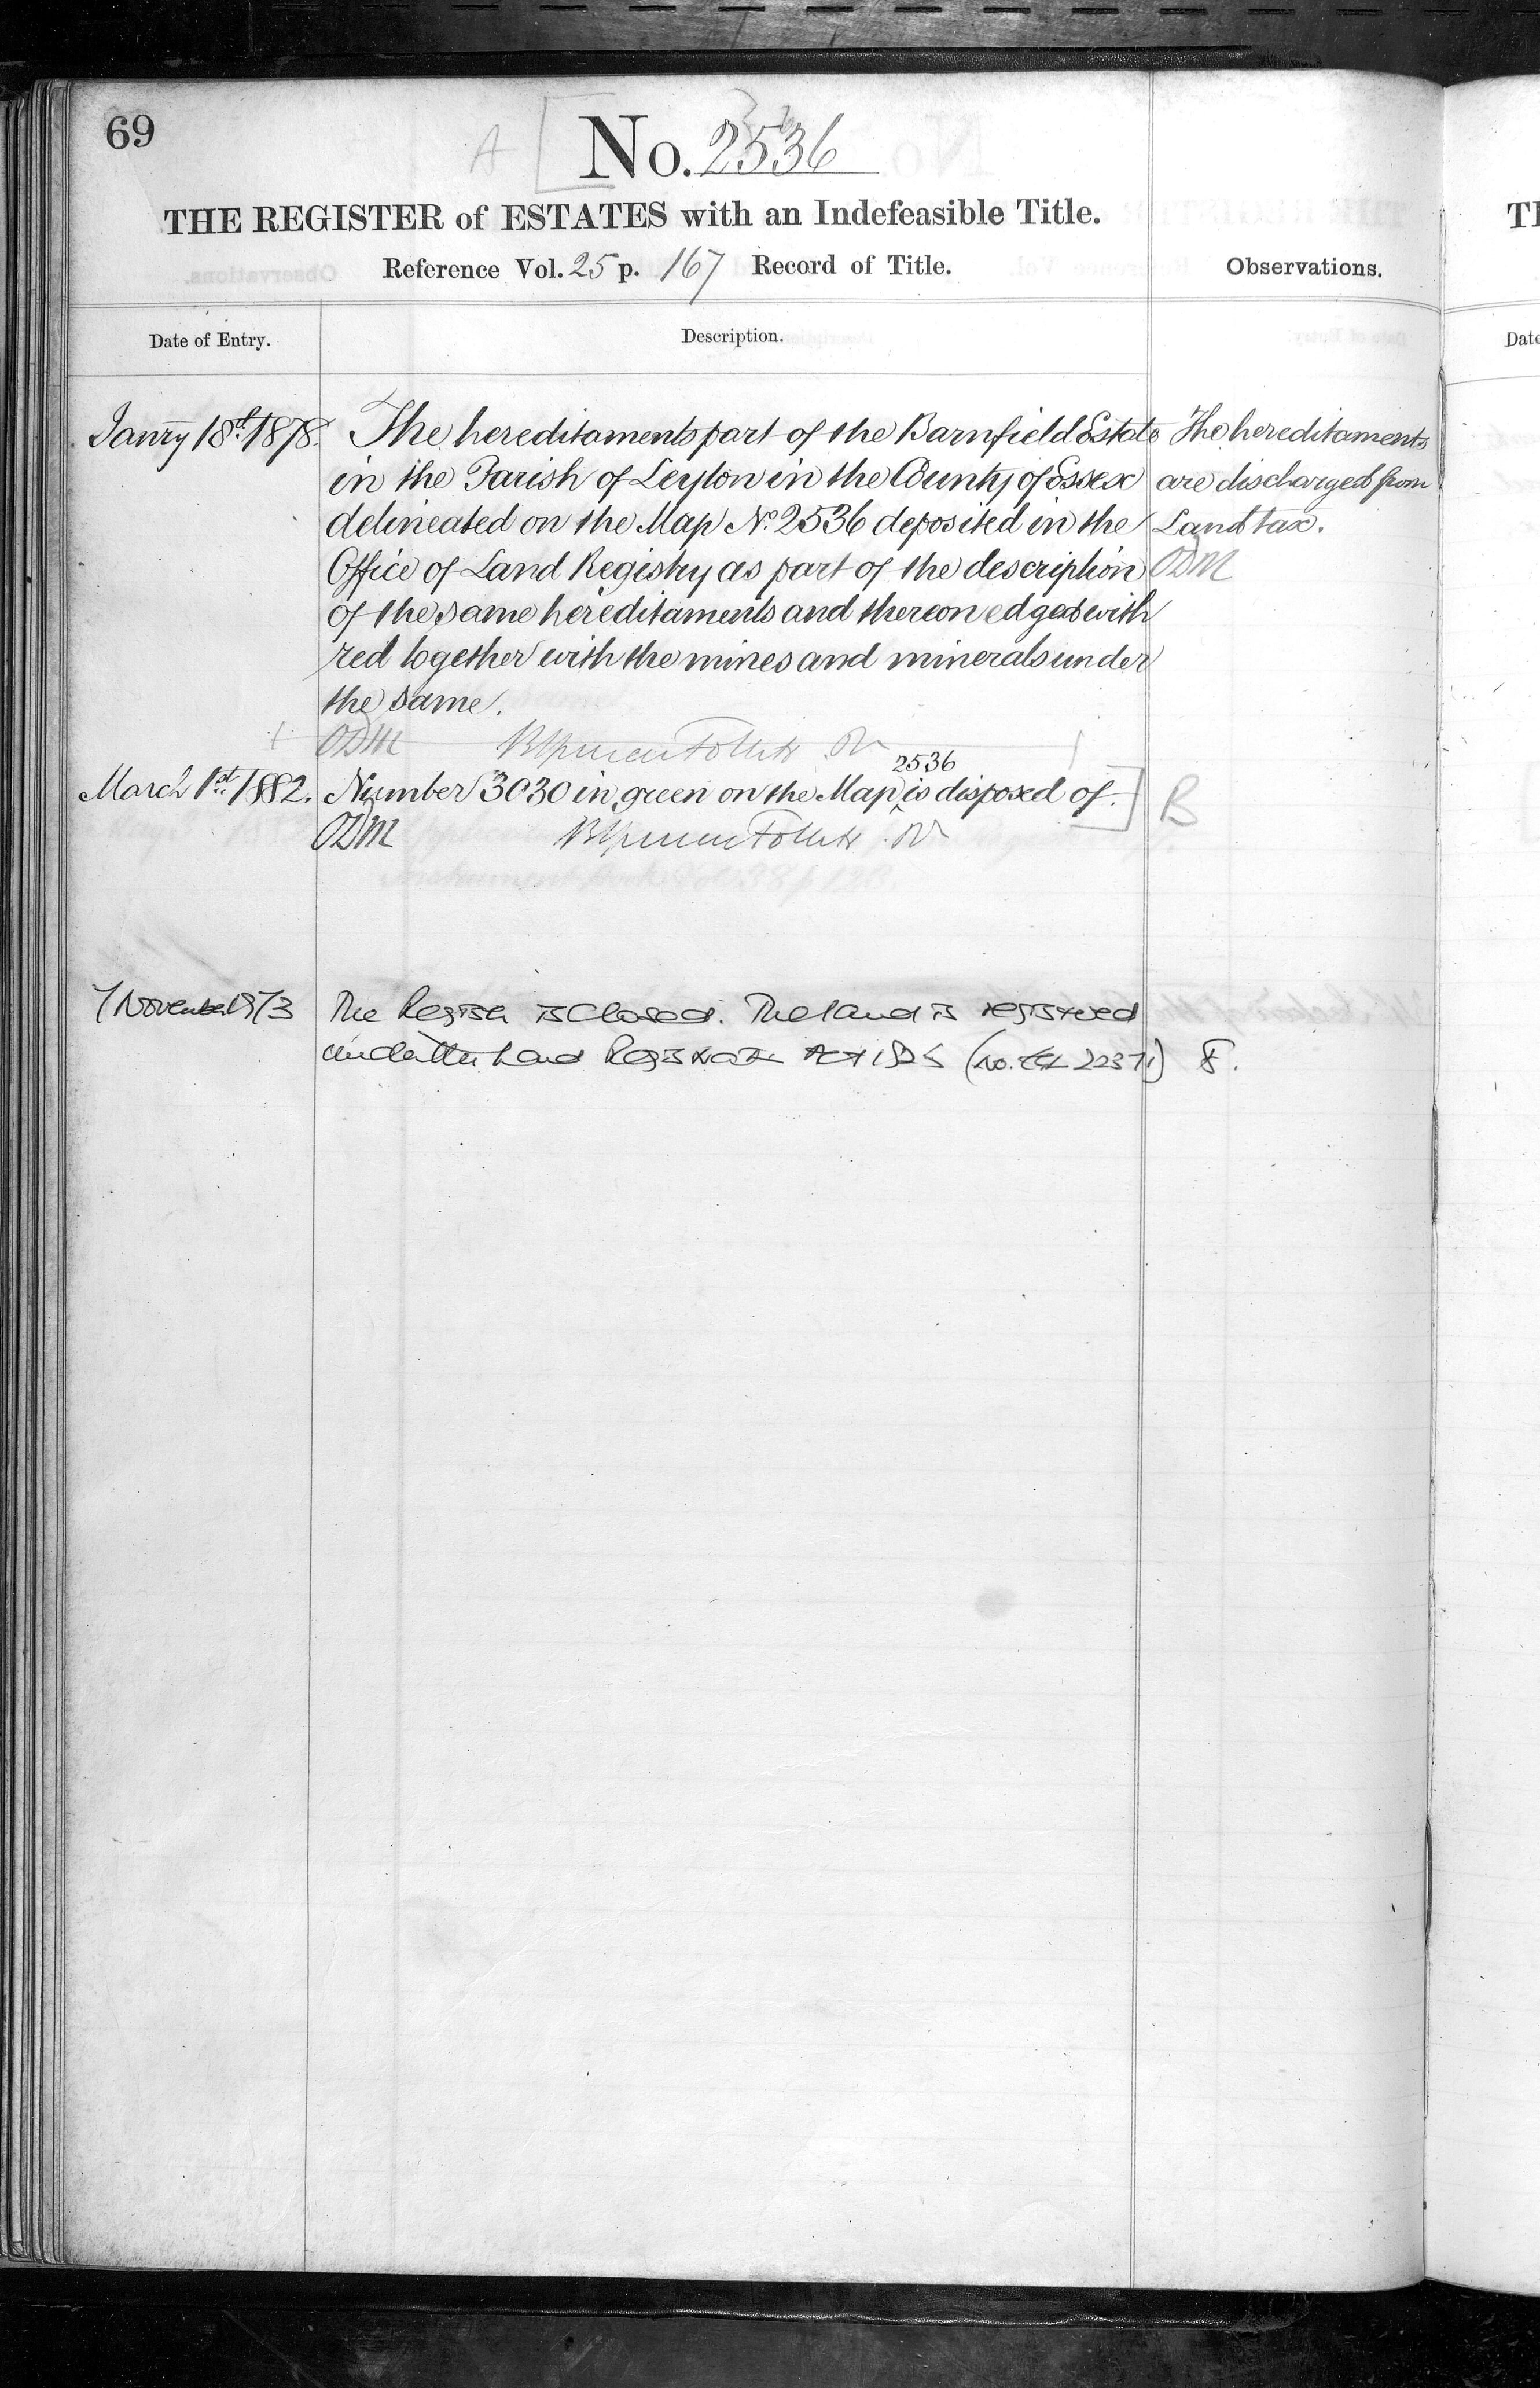 69
A
No. 2536
THE REGISTER of ESTATES with an Indefeasible Title.
Reference Vol. 25 p. 167 Record of Title.
Observations.
Date of Entry.
Description.
Janry 18th 1878.
The hereditaments part of the Barnfield Estate
in the Parish of Leyton in the County of Essex
delineated on the Map No. 2536 deposited in the
Office of Land Registry as part of the description
of the same hereditaments and thereon edged with
red together with the mines and minerals under
the same.
ODM
The hereditaments
are discharged from
Land tax.
ODM
March 1st 1882.
2536
Number 3030 in green on the Map ^ is disposed of.
B
ODM
7 November 1973
The Register is closed. The land is registered
under the Land Registration Act 1925 (No. 22371)